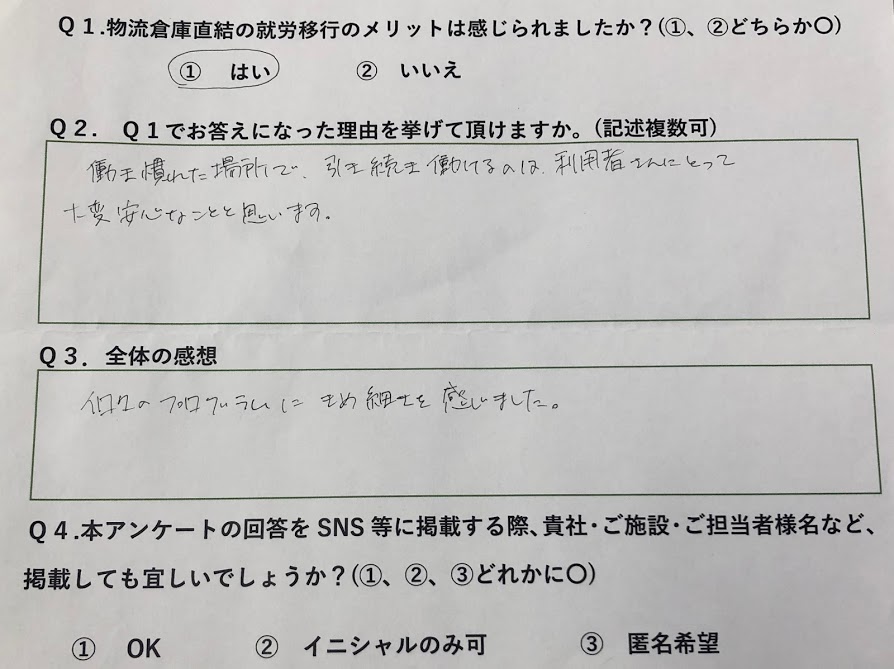 Q1.物流倉庫直結の就労移行のメリットは感じられましたか?(①、②どちらか〇)
① はい ② いいえ
Q2. Q1でお答えになった理由を挙げて頂けますか。(記述複数可)
働き慣れた場所で、引き続き働けるのは、利用者さんにとって
大変安心なことと思います。
Q3. 全体の感想
個々のプログラムにきめ細さを感じました。
Q4.本アンケートの回答をSNS等に掲載する際、貴社・ご施設・ご担当者様名など、
掲載しても宜しいでしょうか?(①、②、③どれかに〇)
① OK ② イニシャルのみ可 ③ 匿名希望